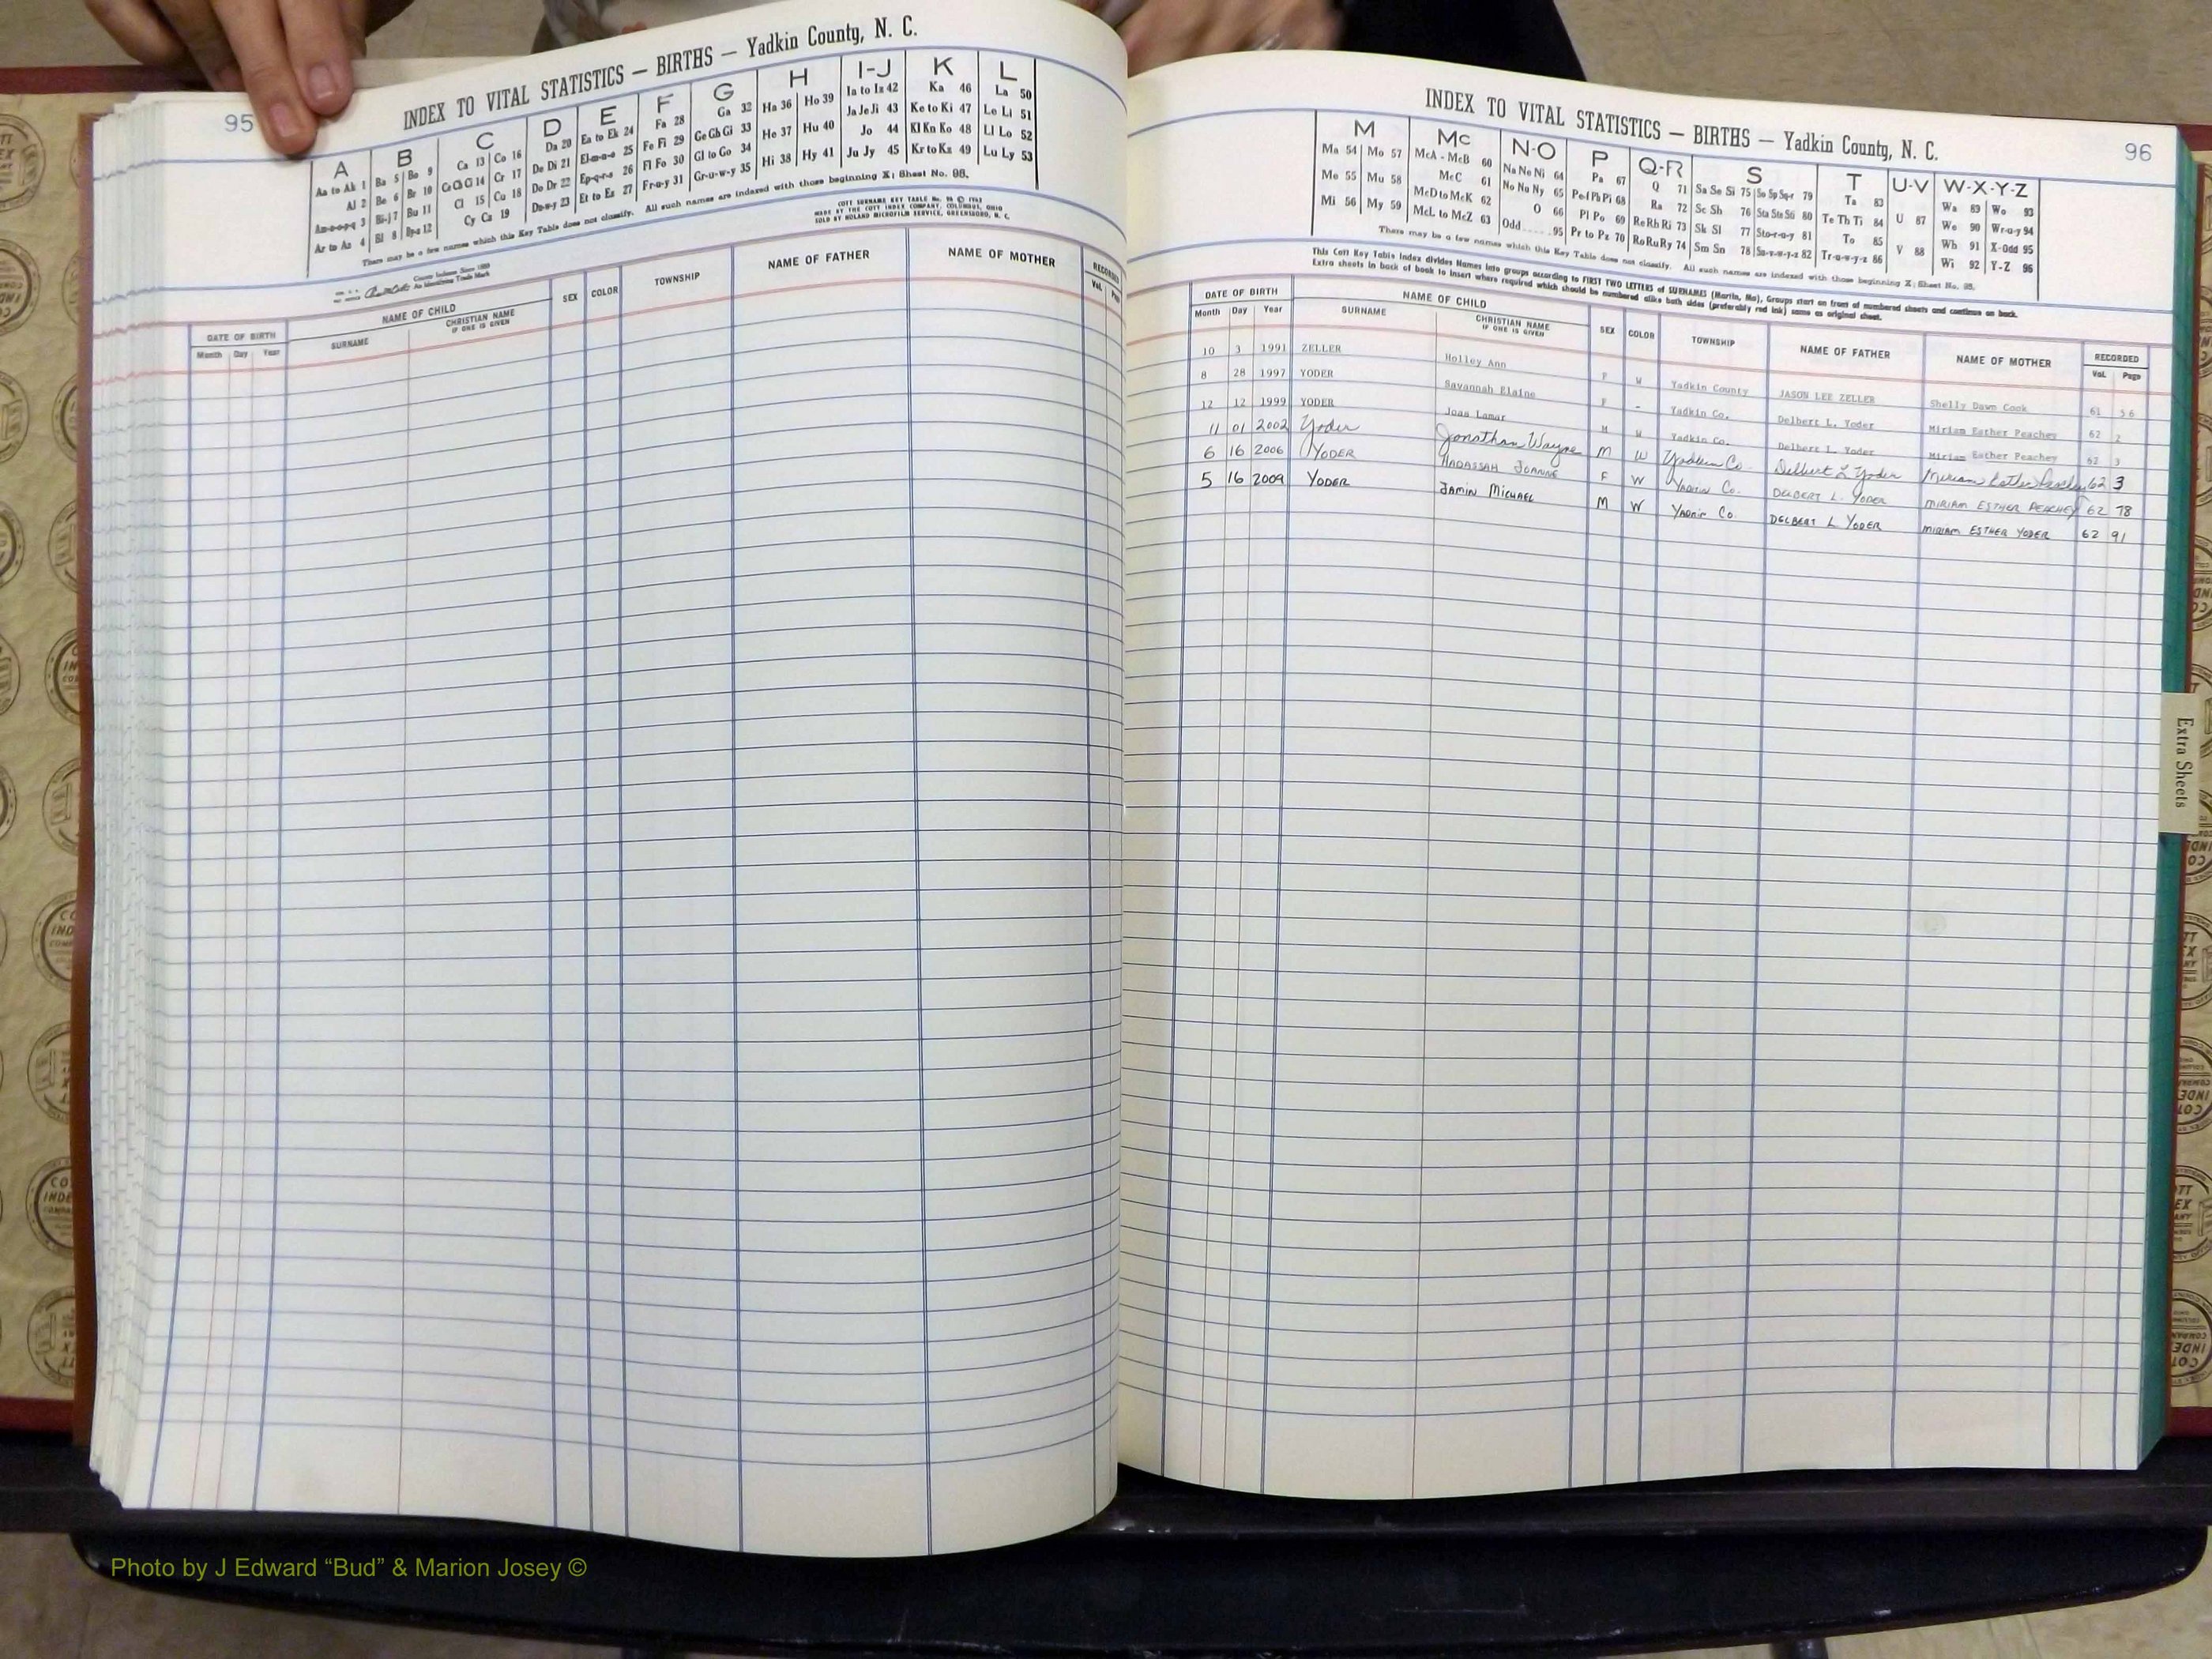 95
INDEX TO VITAL STATISTICS — BIRTHS — Yadkin County, N. C.
A B C D E F G H I-J K L
Aa to Ak 1 Ba 5 Bo 9 Ca 13 Co 16 Da 20 Ea to Ek 24 Fa 28 Ga 32 Ha 36 Ho 39 Ia to Iz 42 Ka 46 La 50
Al 2 Be 6 Br 10 Ce Ch Ci 14 Cr 17 De Di 21 El-m-n-o 25 Fe Fi 29 Ge Gh Gi 33 He 37 Hu 40 Ja Je Ji 43 Ke to Ki 47 Le Li 51
Am-n-o-p-q 3 Bi-j 7 Bu 11 Cl 15 Cu 18 Do Dr 22 Ep-q-r-s 26 Fl Fo 30 Gl to Go 34 Hi 38 Hy 41 Jo 44 Kl Kn Ko 48 Ll Lo 52
Ar to Az 4 Bl 8 Cy Cz 19 Du-w-y 23 Et to Ez 27 Fr-u-y 31 Gr-u-w-y 35 Ju Jy 45 Kr to Kz 49 Lu Ly 53
There may be a few names which this Key Table does not classify. All such names are indexed with those beginning X; Sheet No. 95.
MADE BY THE COTT INDEX COMPANY, COLUMBUS, OHIO
SOLD BY ROLAND MICROFILM SERVICE, GREENSBORO, N. C.
DATE OF BIRTH NAME OF CHILD SEX COLOR TOWNSHIP NAME OF FATHER NAME OF MOTHER RECORDED
Month Day Year SURNAME CHRISTIAN NAME IF ONE IS GIVEN Vol. Page
INDEX TO VITAL STATISTICS — BIRTHS — Yadkin County, N. C.
96
M Mc N-O P Q-R S T U-V W-X-Y-Z
Ma 54 Mo 57 McA - McB 60 Na Ne Ni 64 Pa 67 Q 71 Sa Se Si 75 So Sp Sq-r 79 Ta 83 U 87 Wa 89 Wo 93
Me 55 Mu 58 McC 61 No Nu Ny 65 Pe-f Ph Pi 68 Ra 72 Sc Sh 76 Sta Ste Sti 80 Te Th Ti 84 V 88 We 90 Wr-u-y 94
Mi 56 My 59 McD to McK 62 O 66 Pl Po 69 Re Rh Ri 73 Sk Sl 77 Sto-r-u-y 81 To 85 Wh 91 X-Odd 95
McL to McZ 63 Odd 95 Pr to Pz 70 Ro Ru Ry 74 Sm Sn 78 Su-v-w-y-z 82 Tr-u-w-y-z 86 Wi 92 Y-Z 96
There may be a few names which this Key Table does not classify. All such names are indexed with those beginning X; Sheet No. 95.
This Cott Key Table Index divides Names into groups according to FIRST TWO LETTERS of SURNAMES (Martin, Ma), Groups start on front of numbered sheets and continue on back.
Extra sheets in back of book to insert where required which should be numbered alike both sides (preferably red ink) same as original sheet.
DATE OF BIRTH NAME OF CHILD SEX COLOR TOWNSHIP NAME OF FATHER NAME OF MOTHER RECORDED
Month Day Year SURNAME CHRISTIAN NAME IF ONE IS GIVEN Vol. Page
10 3 1991 ZELLER Holley Ann F W Yadkin County JASON LEE ZELLER Shelly Dawn Cook 61 56
8 28 1997 YODER Savannah Elaine F - Yadkin Co. Delbert L. Yoder Miriam Esther Peachey 62 2
12 12 1999 YODER Joas Lamar M W Yadkin Co. Delbert L. Yoder Miriam Esther Peachey 62 3
11 01 2002 Yoder Jonathan Wayne M W Yadkin Co. Delbert L Yoder Miriam Esther Peachey 62 3
6 16 2006 YODER HADASSAH JOANNE F W YADKIN Co. DELBERT L. YODER MIRIAM ESTHER PEACHEY 62 78
5 16 2009 YODER JAMIN MICHAEL M W YADKIN Co. DELBERT L YODER MIRIAM ESTHER YODER 62 91
Extra Sheets
Photo by J Edward “Bud” & Marion Josey ©